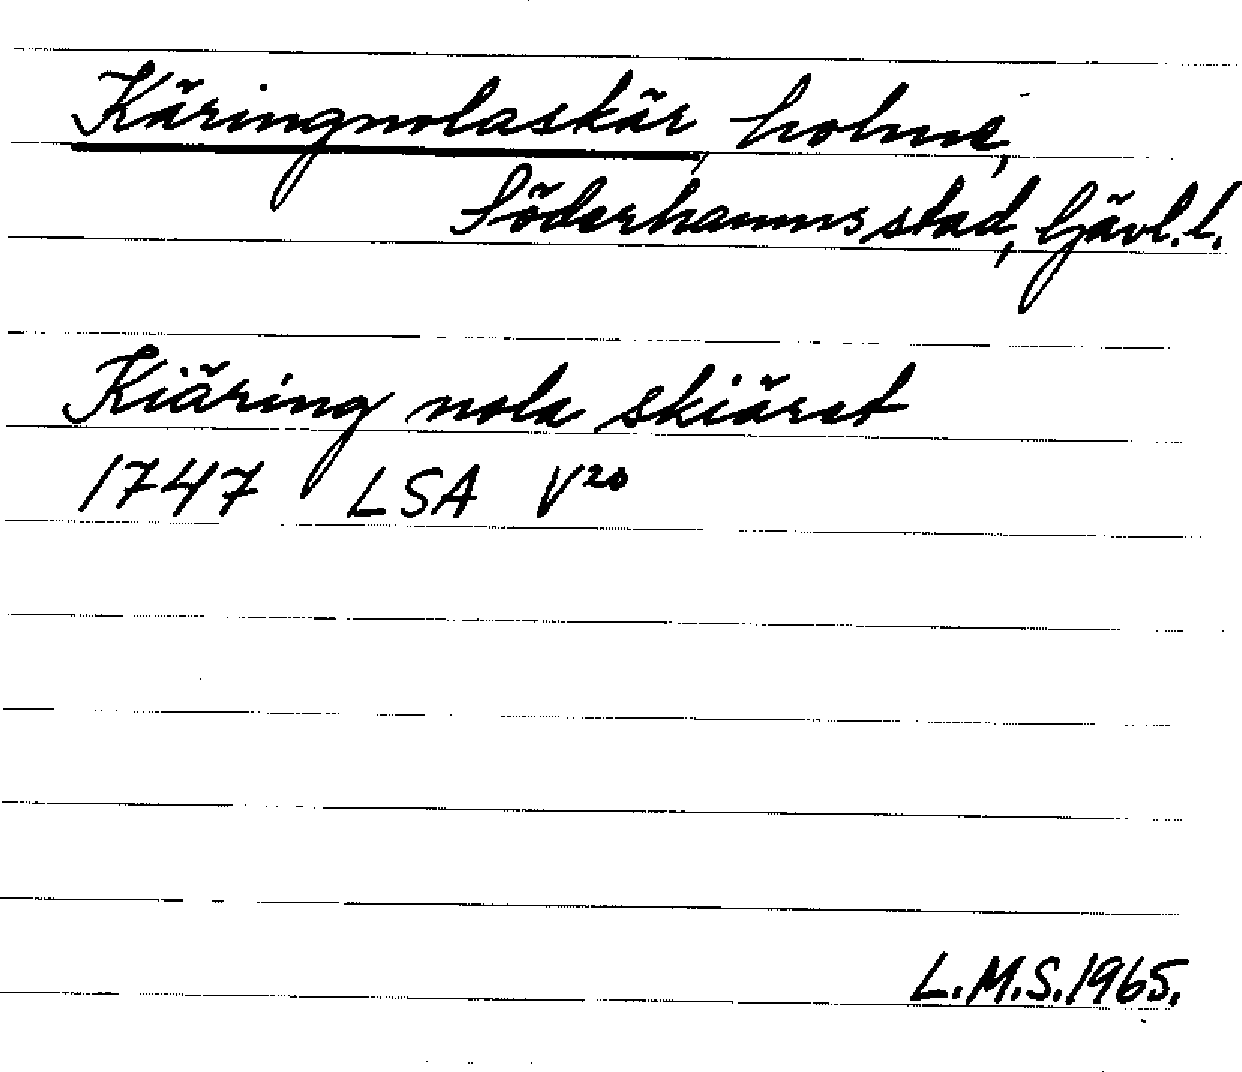 Käringnolaskär, holme,
Söderhamns stad, Gävl.l.
Kiäring nola skiäret
1747 LSA V20
L.M.S.1965.